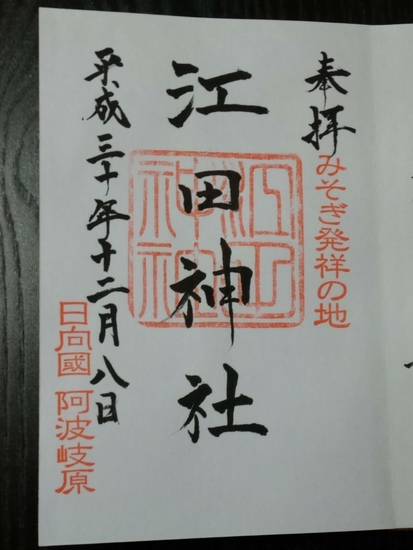 奉拝
みそぎ発祥の地
江田神社
江田神社
平成三十年十二月八日
日向國 阿波岐原